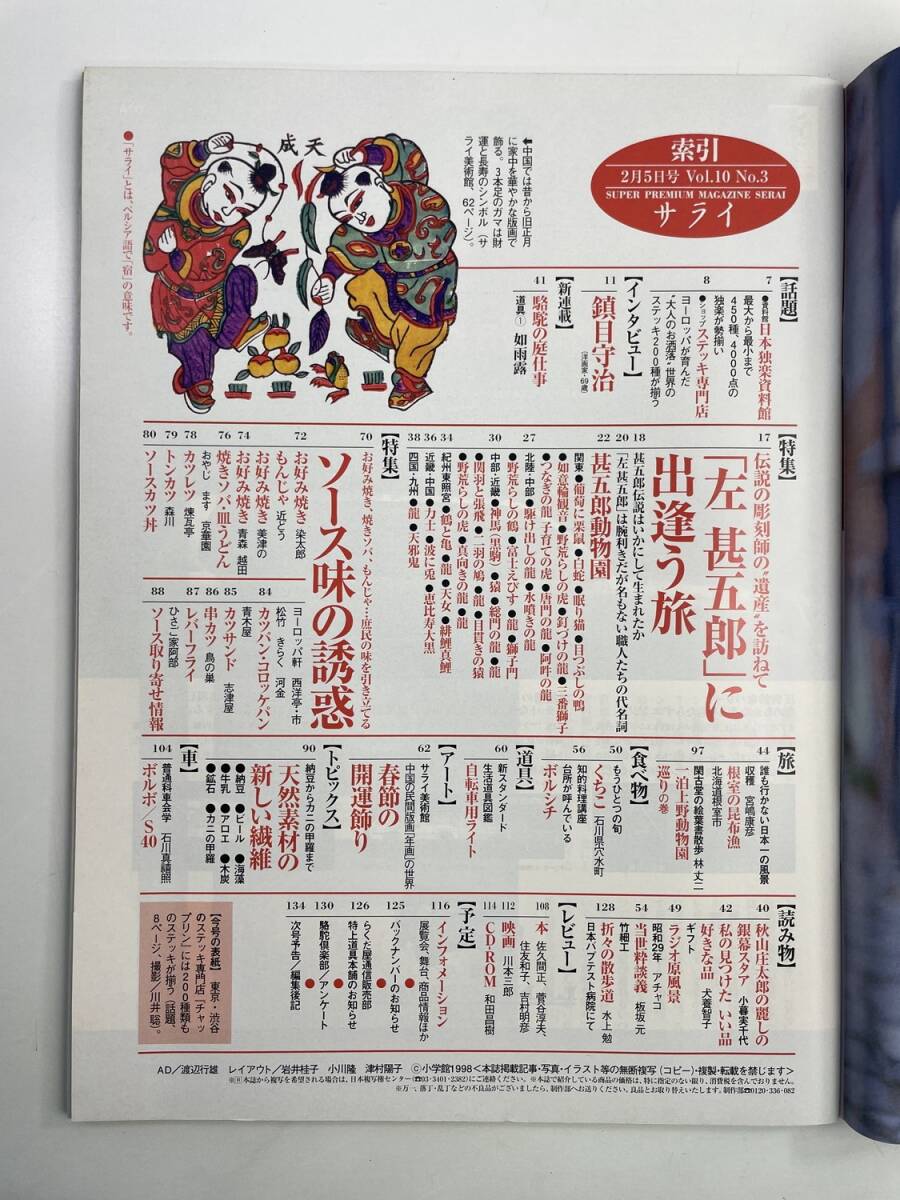 索引
2月5日号 Vol.10 No.3
SUPER PREMIUM MAGAZINE SERAI
サライ
天成
⬅中国では昔から旧正月
に家中を華やかな版画で
飾る。3本足のガマは財
運と長寿のシンボル(サ
ライ美術館、62ページ)。
●「サライ」とは、ペルシア語で「宿」の意味です。
【話題】
7
●資料館 日本独楽資料館
最大から最小まで
450種、4000点の
独楽が勢揃い
8
●ショップ ステッキ専門店
ヨーロッパが育んだ
“大人のお洒落”世界の
ステッキ200種が揃う
【インタビュー】
11
鎮目守治
(洋画家・69歳)
【新連載】
41
駱駝の庭仕事
道具① 如雨露
【特集】
17
伝説の彫刻師の“遺産”を訪ねて
「左 甚五郎」に
出逢う旅
18
甚五郎伝説はいかにして生まれたか
20
「左甚五郎」は腕利きだが名もない職人たちの代名詞
22
甚五郎動物園
関東●葡萄に栗鼠●白蛇●眠り猫●目つぶしの鴨
●如意輪観音●野荒らしの虎●釘づけの龍●三番獅子
●つなぎの龍 子育ての虎●唐門の龍●阿吽の龍
27
北陸・中部●駆け出しの龍●水噴きの龍
●野荒らしの鶴●富士えびす●龍●獅子門
30
中部・近畿●神馬(黒駒)●猿●総門の龍●龍
●関羽と張飛●二羽の鳩●龍●目貫きの猿
●野荒らしの虎●真向きの龍●龍
34
紀州東照宮●鶴と亀●龍●天女●緋鯉真鯉
36
近畿・中国●力士●波に兎●恵比寿大黒
38
四国・九州●龍●天邪鬼
【特集】
70
お好み焼き、焼きソバ、もんじゃ…庶民の味を引き立てる
ソース味の誘惑
72
お好み焼き 染太郎
もんじゃ 近どう
74
お好み焼き 美津の
お好み焼き 青森 越田
76
焼きソバ・皿うどん
おやじ ます 京華園
78
カツレツ 煉瓦亭
79
トンカツ 森川
80
ソースカツ丼
ヨーロッパ軒 西洋亭・市
松竹 きらく 河金
84
カツパン・コロッケパン
青木屋
85
カツサンド 志津屋
86
串カツ 鳥の巣
87
レバーフライ
ひさご家阿部
88
ソース取り寄せ情報
【旅】
44
誰も行かない日本一の風景
収穫 宮嶋康彦
根室の昆布漁
北海道根室市
97
閑古堂の絵葉書散歩 林 丈二
一泊上野動物園
巡りの巻
【食べ物】
50
もうひとつの旬
くちこ 石川県穴水町
56
知的料理講座
台所が呼んでいる
ボルシチ
【道具】
60
新スタンダード
生活道具図鑑
自転車用ライト
【アート】
62
サライ美術館
中国の民間版画「年画」の世界
春節の
開運飾り
【トピックス】
90
納豆からカニの甲羅まで
天然素材の
新しい繊維
●納豆 ●ビール ●海藻
●牛乳 ●アロエ ●木炭
●鉱石 ●カニの甲羅
【車】
104
普通科車会学 石川真禧照
ボルボ/S40
【読み物】
40
秋山庄太郎の麗しの
銀幕スタア 小暮実千代
42
私の見つけた いい品
好きな品 犬養智子
ギフト
49
ラジオ原風景
昭和29年 アチャコ
54
当世粋談義 板坂 元
竹細工
128
折々の散歩道 水上 勉
日本バプテスト病院にて
【レビュー】
108
本 佐久間正、菅谷淳夫、
住友和子、吉村明彦
112
映画 川本三郎
114
CD-ROM 和田昌樹
【予定】
116
インフォメーション
展覧会、舞台、商品情報ほか
125
バックナンバーのお知らせ
●
126
らくだ屋通信販売部
特上道具本舗のお知らせ
●
130
駱駝倶楽部/アンケート
●
134
次号予告/編集後記
【今号の表紙】 東京・渋谷
のステッキ専門店「チャッ
プリン」には200種類も
のステッキが揃う(話題、
8ページ、撮影/川井聡)。
AD/渡辺行雄 レイアウト/岩井桂子 小川隆 津村陽子 ©小学館1998<本誌掲載記事・写真・イラスト等の無断複写(コピー)・複製・転載を禁じます>
※Ⓡ本誌から複写を希望される場合は、日本複写権センター(☎03・3401・2382)にご連絡ください。※本誌で紹介している商品の価格は、特に指定のない限り、消費税を含んでおりません。
※万一、落丁・乱丁などの不良品がございましたら、制作部へお送りください。良品とお取り替えいたします。制作部☎0120・336・082